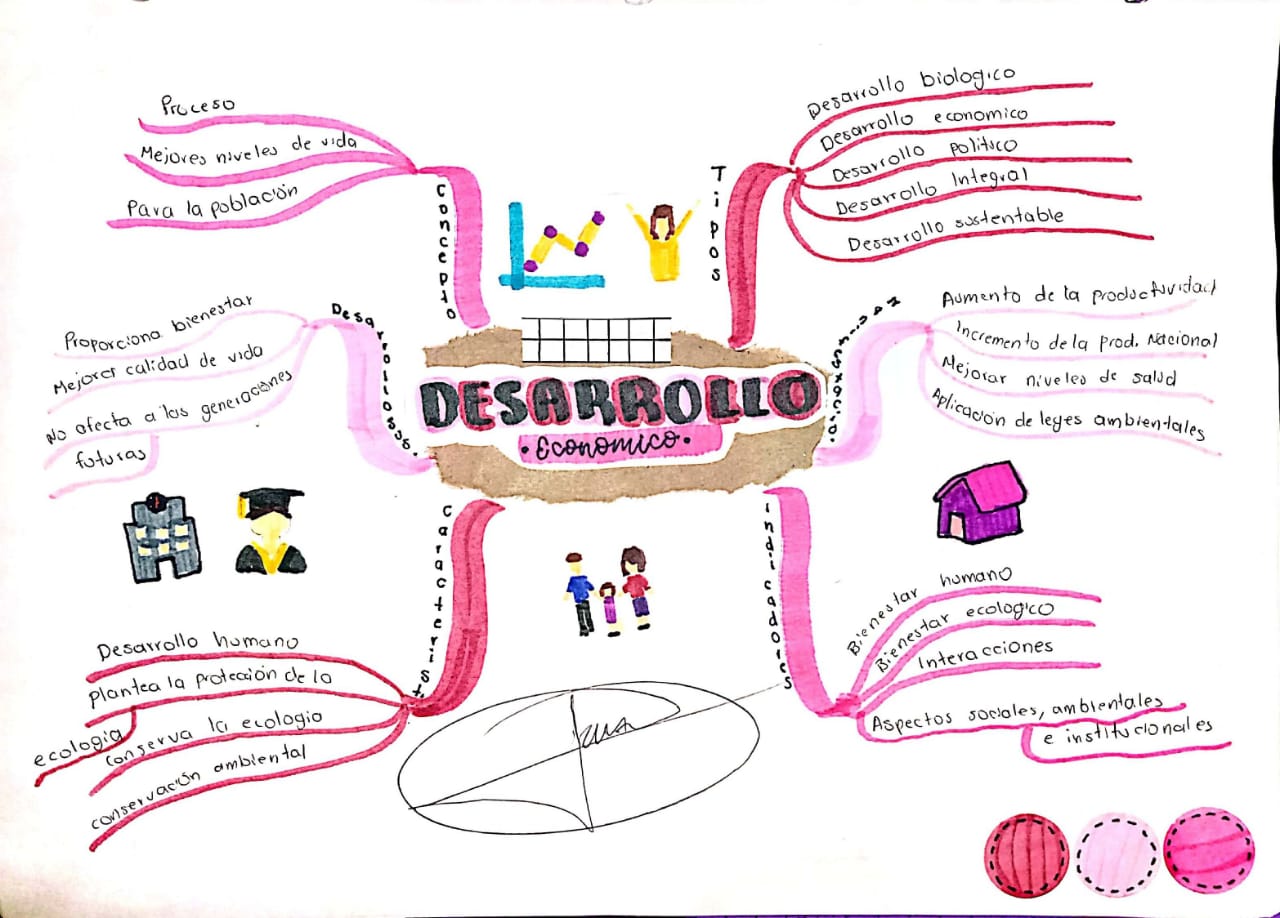 DESARROLLO
• Economico •
Concepto
Proceso
Mejores niveles de vida
Para la población
Tipos
Desarrollo biologico
Desarrollo economico
Desarrollo politico
Desarrollo Integral
Desarrollo sustentable
Desarrollo sus.
Proporciona bienestar
Mejorar calidad de vida
No afecta a las generaciones
futuras
Aumento de la productividad
Incremento de la prod. Nacional
Mejorar niveles de salud
Aplicación de leyes ambientales
Caracterist
Desarrollo humano
plantea la protección de la
ecologia
conserva la ecologia
conservación ambiental
Indicadores
Bienestar humano
Bienestar ecologico
Interacciones
Aspectos sociales, ambientales
e institucionales